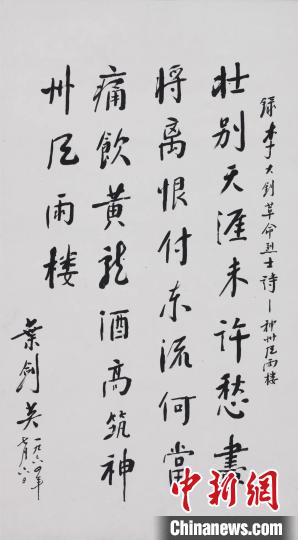 录李大钊革命烈士诗—神州风雨楼
壮别天涯未许愁盡
将离恨付东流何當
痛飲黄龙酒高筑神
州风雨楼
葉剑英
一九六四年
中新網
WWW.CHINANEWS.COM